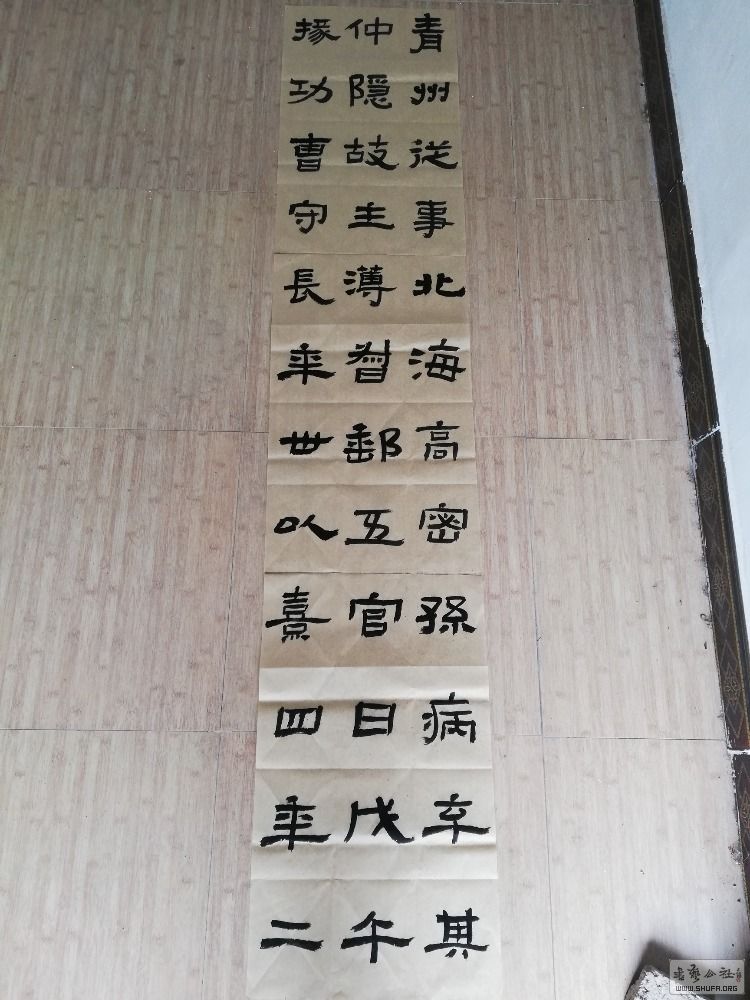 青州從事北海高密孫病卒其
仲隱故主薄督郵五官日戊午
掾功曹守長年丗以熹四年二
WWW.SHUFA.ORG